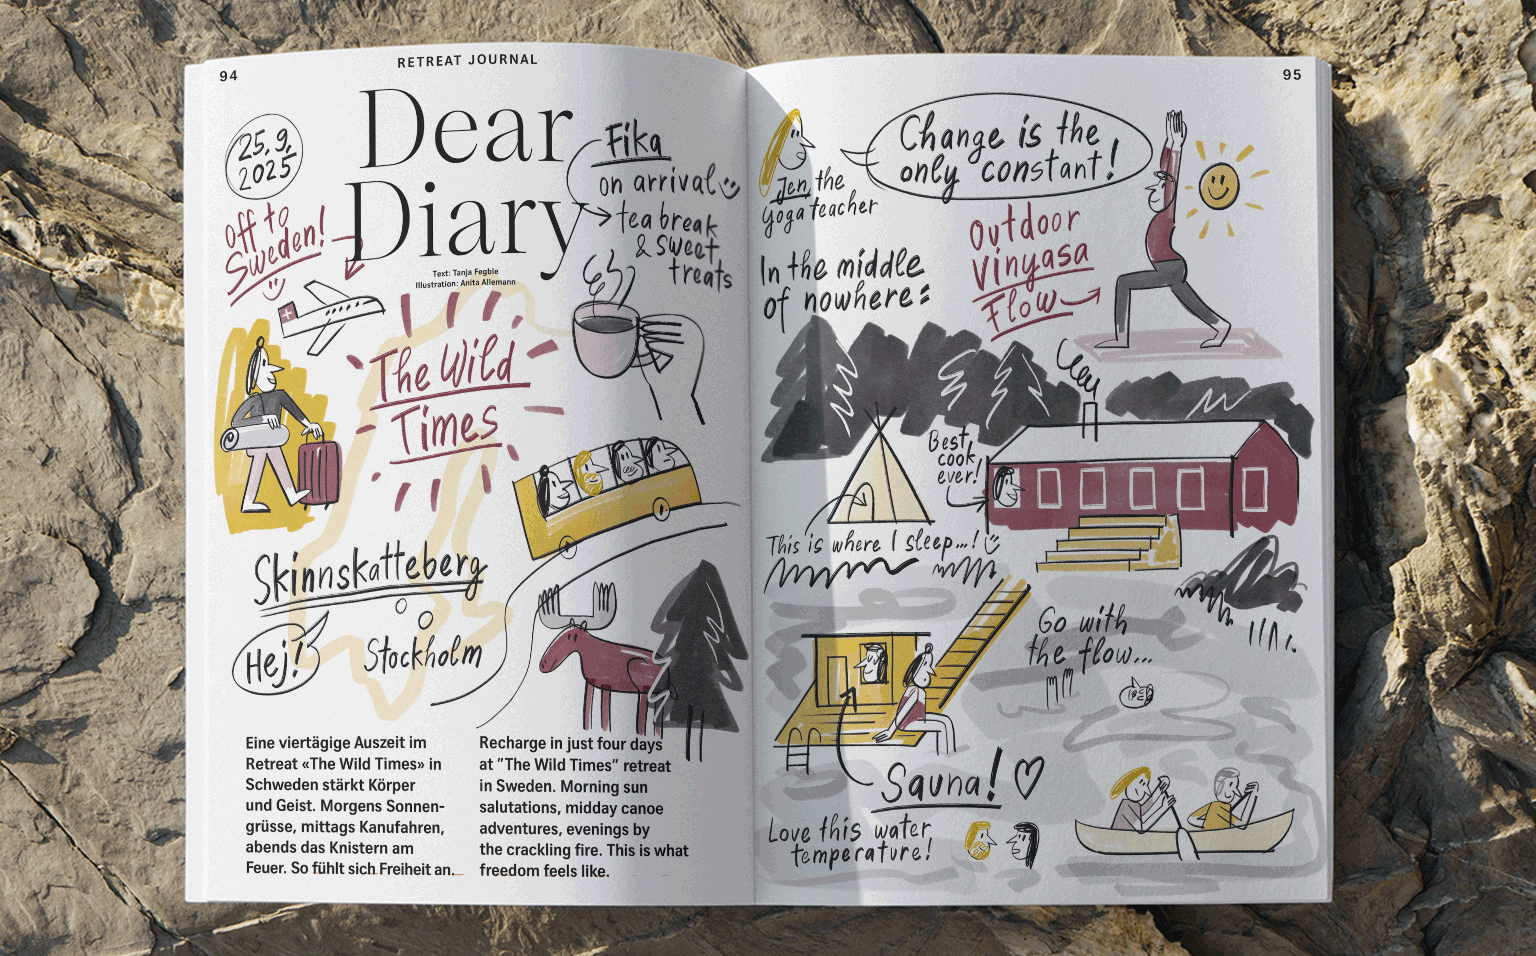 94
RETREAT JOURNAL
Dear
Diary
Text: Tanja Fegble
Illustration: Anita Allemann
25.9.
2025
off to
Sweden!
Fika
on arrival
tea break
& sweet
treats
The Wild
Times
Skinnskatteberg
Hej!
Stockholm
Eine viertägige Auszeit im
Retreat «The Wild Times» in
Schweden stärkt Körper
und Geist. Morgens Sonnen-
grüsse, mittags Kanufahren,
abends das Knistern am
Feuer. So fühlt sich Freiheit an.
Recharge in just four days
at ”The Wild Times” retreat
in Sweden. Morning sun
salutations, midday canoe
adventures, evenings by
the crackling fire. This is what
freedom feels like.
95
Change is the
only constant!
Jen, the
Yoga teacher
Outdoor
Vinyasa
Flow
In the middle
of nowhere:
Best
cook
ever!
This is where I sleep...!
Go with
the flow...
Sauna!
Love this water
temperature!